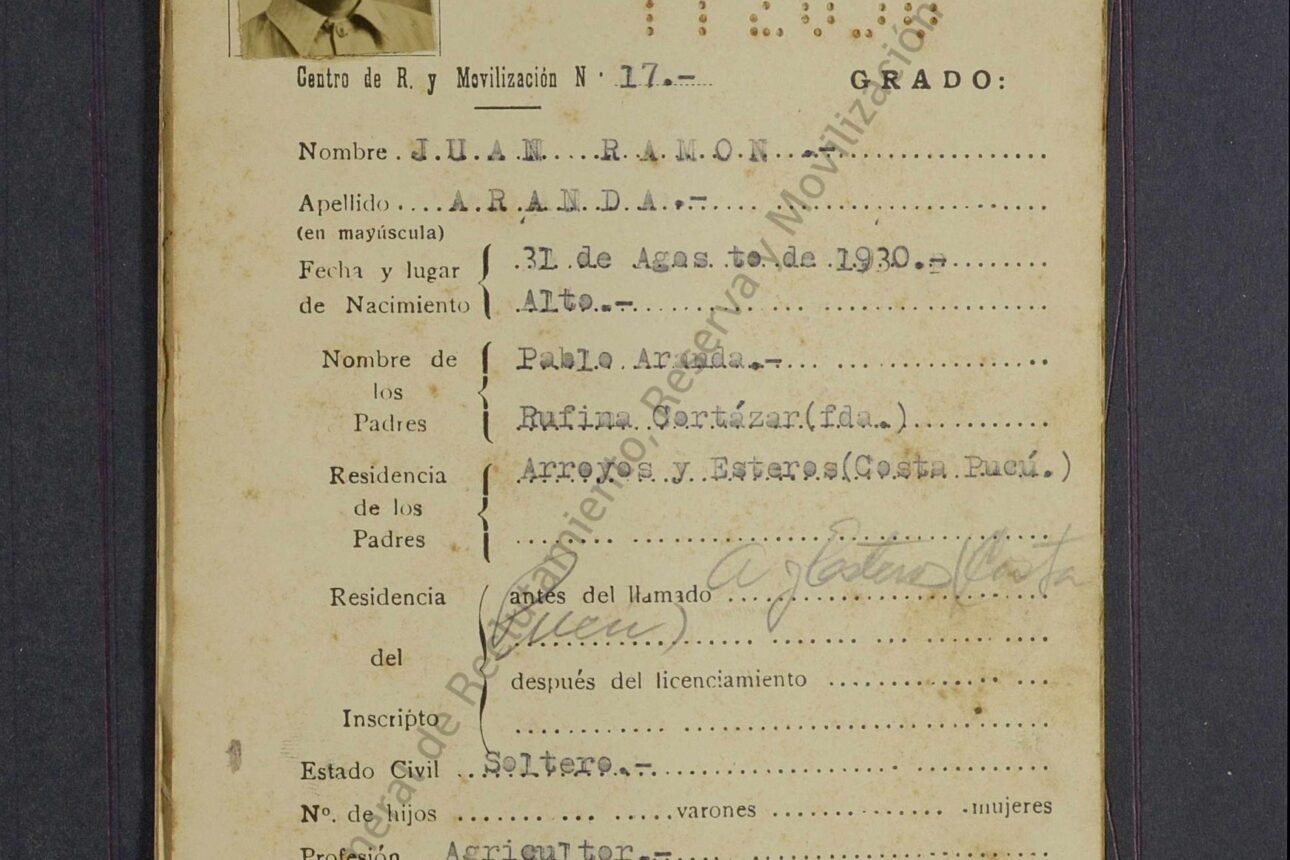 Centro de R. y Movilización N° 17.-
GRADO:
Nombre. JUAN RAMON.-
Apellido.... ARANDA.-
(en mayúscula)
Fecha y lugar de Nacimiento
31 de Agosto de 1930.-
Alto.-
Nombre de los Padres
Pablo Aranda.-
Rufina Cortázar(fda.)
Residencia de los Padres
Arroyos y Esteros(Costa Pucú.)
Residencia del Inscripto
antes del llamado A y Esteros (Costa
después del licenciamiento
Estado Civil ..Soltero.-
Nº. de hijos varones mujeres
Profesión Agricultor.-
de Reclutamiento, Reserva y Movilización